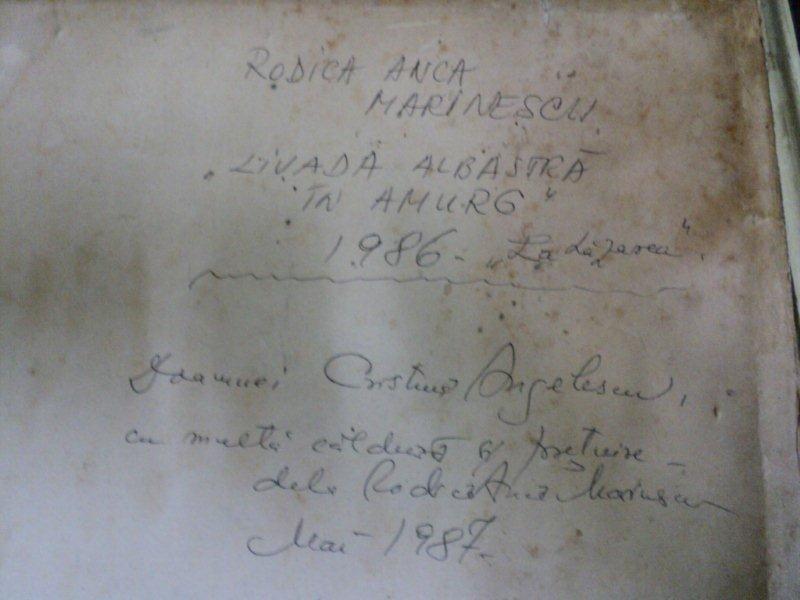 RODICA ANCA
MARINESCU
„LIVADĂ ALBASTRĂ
ÎN AMURG"
1986 - „La Lăzarea".
Doamnei Cristina Angelescu,
cu multă căldură și prețuire -
dela Rodica Anca Marinescu
Mai - 1987.